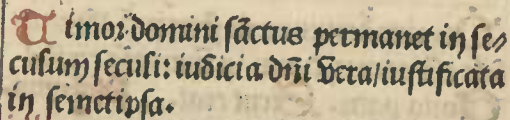 Timor domini sāctus permanet in se⸗
culum seculi: iudicia dn̄i vera/iustificata
in semetipsa.